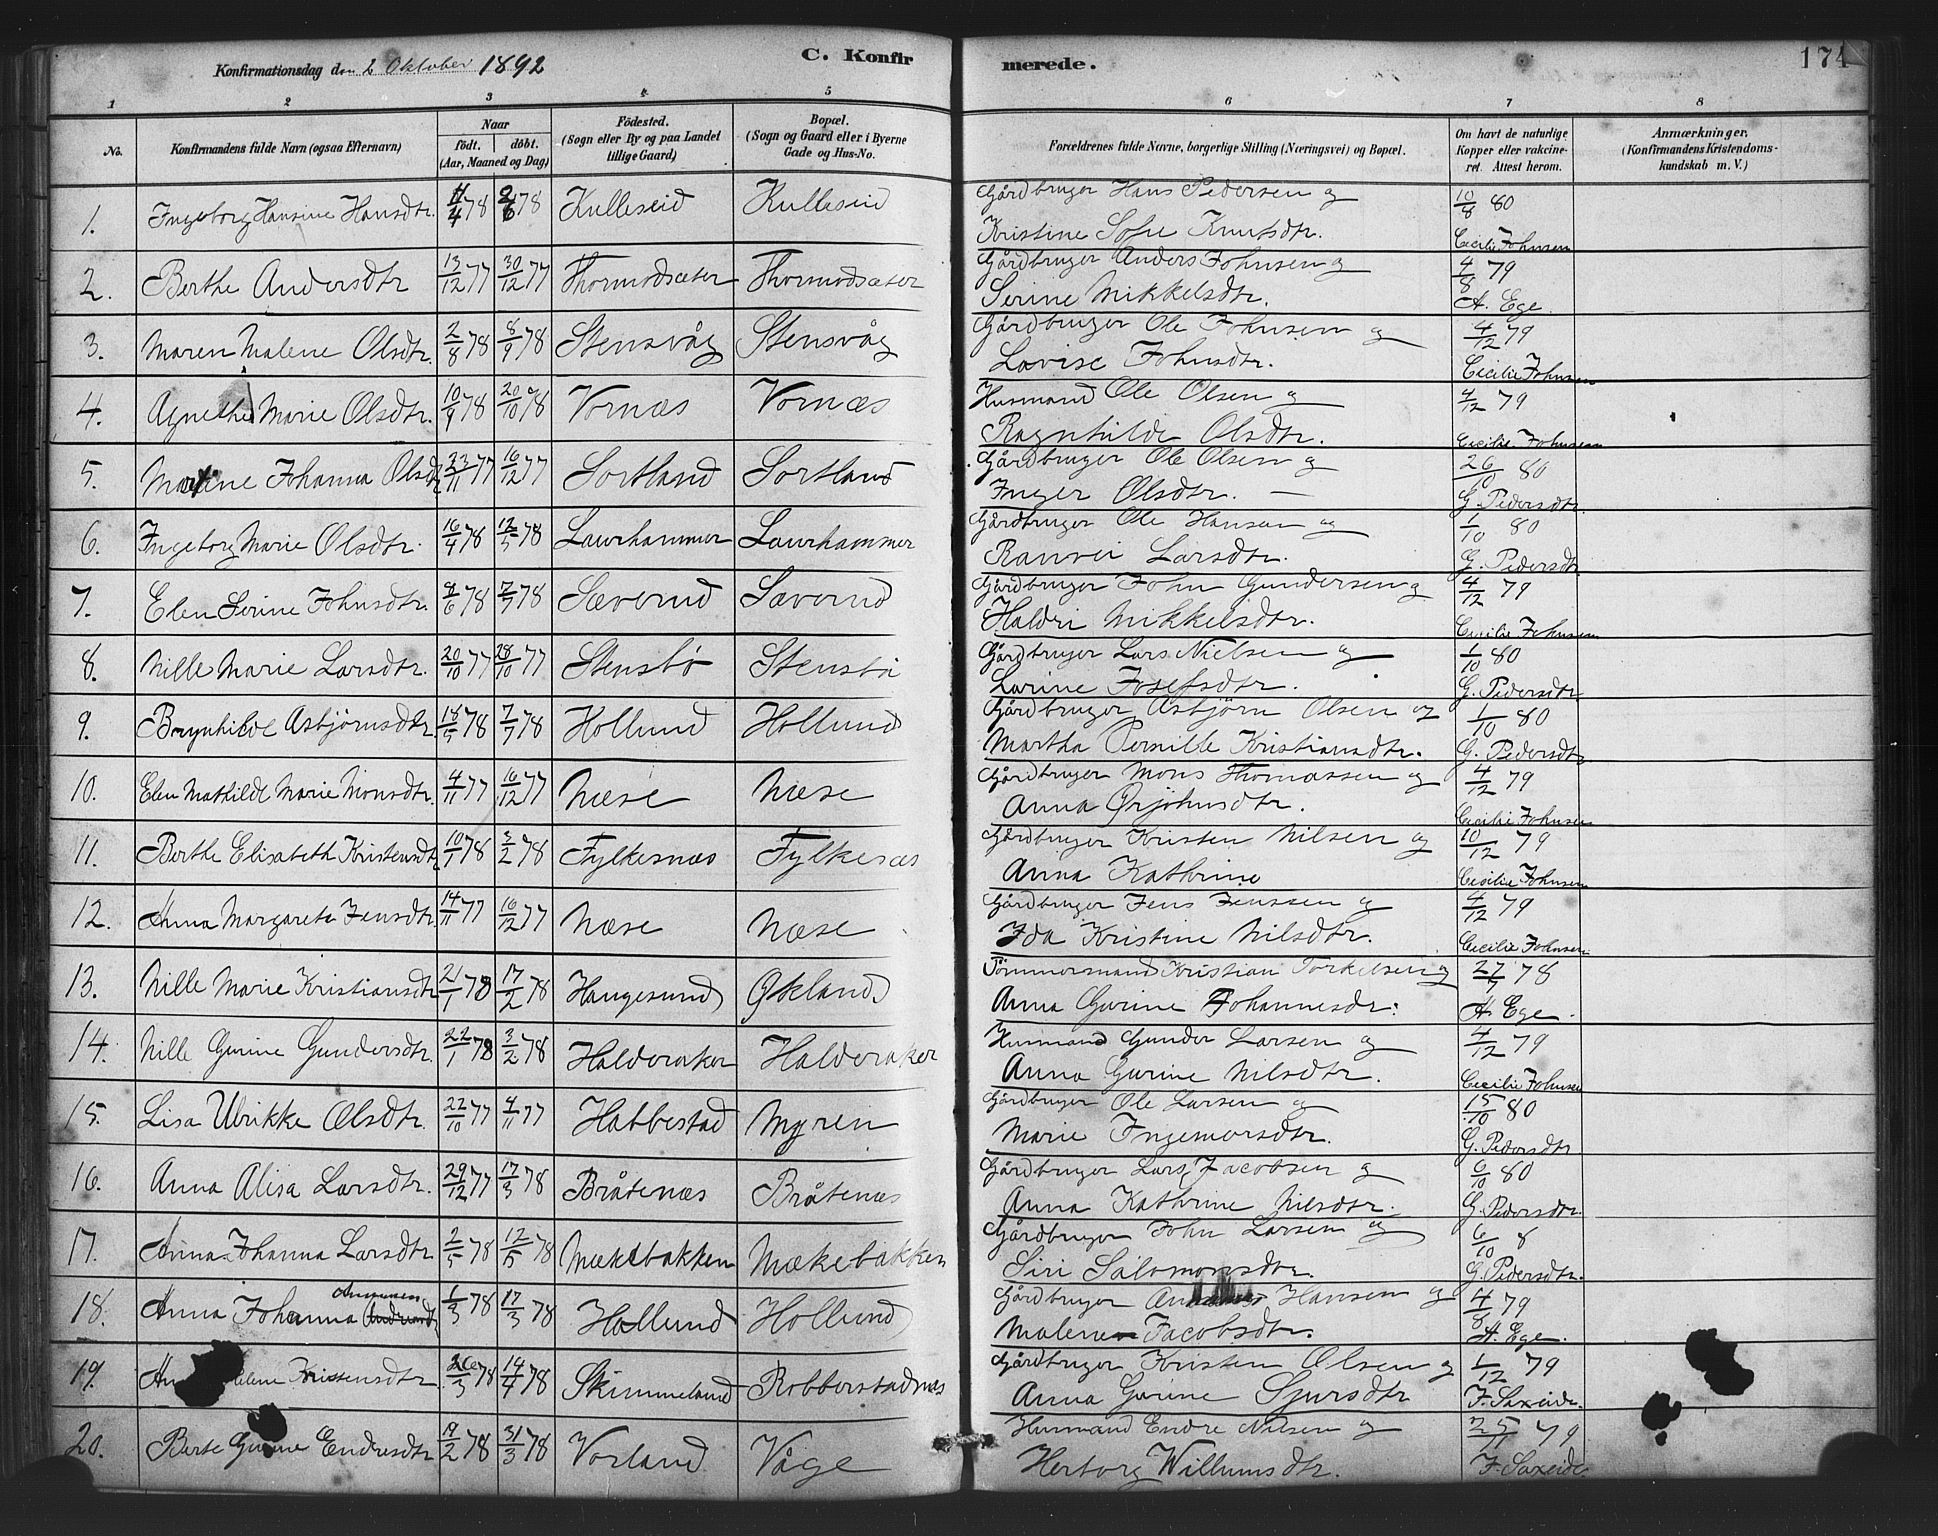 Konfirmationsdag den 2 Oktober 1892 C. Konfirmerede. 174
1 2 3 4 5 6 7 8
No. Konfirmandens fulde Navn (ogsaa Efternavn) Naar født. døbt. (Aar, Maaned og Dag) Födested. (Sogn eller By og paa Landet tillige Gaard) Bopæl. (Sogn og Gaard eller i Byerne Gade og Hus-No. Forældrenes fulde Navne, borgerlige Stilling (Næringsvei) og Bopæl. Om havt de naturlige Kopper eller vakcineret. Attest herom. Anmærkninger. (Konfirmandens Kristendomskundskab m. V.)
1. Ingeborg Hansine Hansdtr. 4/4 78 2/6 78 Kulleseid Kulleseid Gårdbruger Hans Pedersen og 10/8 80
Kristine Sofie Knutsdtr. Cecilie Johnsen
2. Berthe Andersdtr 13/12 77 30/12 77 Thormodsæter Thormodsæter Gårdbruger Anders Johnsen og 4/8 79
Serine Mikkelsdtr. A. Ege.
3. Maren Malene Olsdtr. 2/8 78 8/9 78 Stensvåg Stensvåg Gårdbruger Ole Johnsen og 4/12 79
Lovise Johnsdtr. Cecilie Johnsen
4. Agnethe Marie Olsdtr. 10/9 78 20/10 78 Vornæs Vornæs Husmand Ole Olsen og 4/12 79
Ragnhilde Olsdtr. Cecilie Johnsen
5. Johanna Olsdtr 22/11 77 16/12 77 Sortland Sortland Gårdbruger Ole Olsen og 26/10 80
Inger Olsdtr. — G. Pedersdtr.
6. Ingeborg Marie Olsdtr. 16/4 78 12/5 78 Laurhammer Laurhammer Gårdbruger Ole Hansen og 1/10 80
Ranvei Larsdtr. G. Pedersdtr.
7. Elen Serine Johnsdtr. 9/6 78 7/7 78 Sæverud Sæverud Gårdbruger John Gundersen og 4/12 79
Haldri Mikkelsdtr. Cecilie Johnsen
8. Nille Marie Larsdtr. 20/10 77 28/10 77 Stensbö Stensbö Gårdbruger Lars Nielsen og 1/10 80
Larine Josefsdtr. G. Pedersdtr
9. Brynhilde Asbjørnsdtr 18/5 78 7/7 78 Hollund Hollund Gårdbruger Asbjørn Olsen og 1/10 80
Martha Pernille Kristiansdtr. G. Pedersdtr
10. Elen Mathilde Marie Monsdtr. 4/11 77 16/12 77 Næse Næse Gårdbruger Mons Thomassen og 4/12 79
Anna Ørjohnsdtr. Cecilie Johnsen
11. Berthe Elisabeth Kristensdtr 10/1 78 3/2 78 Fylkesnæs Fylkesnæs Gårdbruger Kristen Nilsen og 10/12 79
Anna Kathrine Cecilie Johnsen
12. Anna Margareta Jensdtr 14/11 77 16/12 77 Næse Næse Gårdbruger Jens Jenssen og 4/12 79
Ida Kristine Nilsdtr. Cecilie Johnsen
13. Nille Marie Kristiansdtr 21/1 78 17/2 78 Haugesund Økland Tömmermand Kristian Torkelsen og 27/7 78
Anna Gurine Johannesdr: A. Ege.
14. Nille Gurine Gundersdtr. 22/1 78 3/2 78 Halderaker Halderaker Husmand Gunder Larsen og 4/12 79
Anna Gurine Nilsdtr. Cecilie Johnsen
15. Lisa Ulrikke Olsdtr. 22/10 77 4/11 77 Habbestad Myren Gårdbruger Ole Larsen og 15/10 80
Marie Ingemorsdtr. G. Pedersdtr
16. Anna Alisa Larsdtr. 29/12 77 17/3 78 Bråtenæs Bråtenæs Gårdbruger Lars Jacobsen og 6/10 80
Anna Kathrine Nilsdtr. G. Pedersdtr.
17. Anna Johanna Larsdtr 2/5 78 12/5 78 Mækebakken Mækebakken Gårdbruger John Larsen og 6/10 8
Siri Salomonsdtr. G. Pedersdtr.
18. Anna Johanna 1/3 78 17/3 78 Hollund Hollund Gårdbruger Hansen og 4/8 79
Malene Jacobsdtr. A. Ege.
19. Kristensdtr 26/3 78 14/4 78 Skimmeland Robberstadnæs Gårdbruger Kristen Olsen og 1/12 79
Anna Gurine Sjursdtr F. Saxeide.
20. Berte Gurine Endresdtr 19/2 78 31/3 78 Vorland Våge Husmand Endre Nilsen og 25/11 79
Herborg Willumsdtr. F. Saxeide